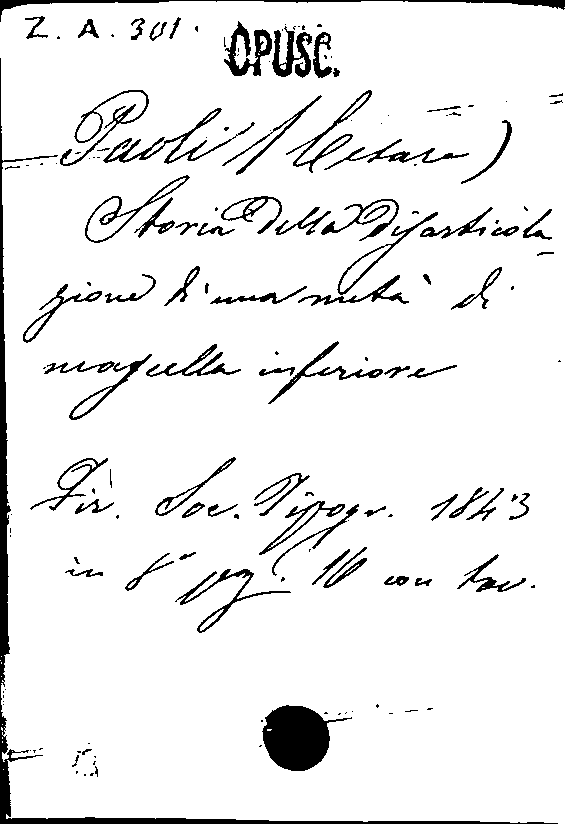 Z. A. 301.
OPUSC.
Paoli (Cesare)
Storia della Disarticola
zione di una metà di
mascella inferiore
Fir. Soc. Tipogr. 1843
in 8° pag. 16 con tav.